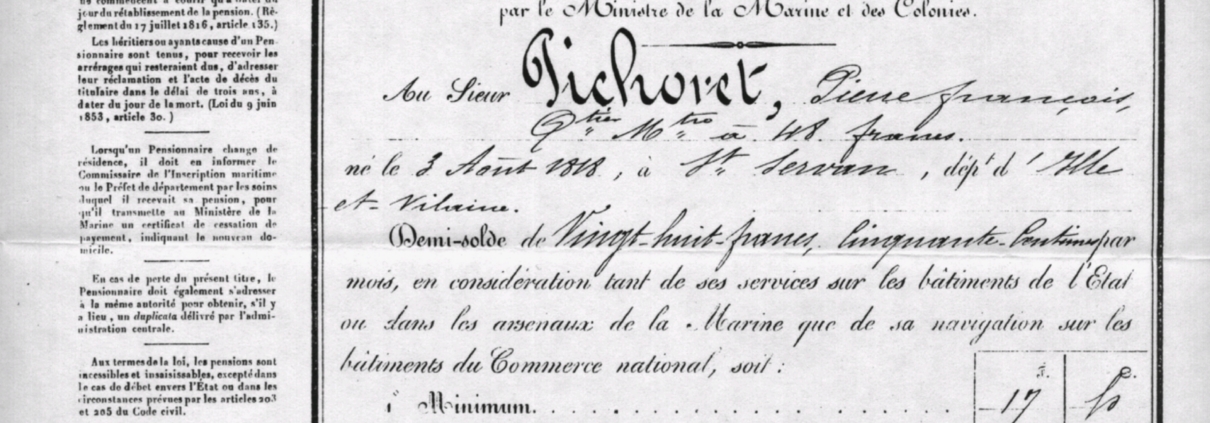 jour du rétablissement de la pension. (Rè-
glement du 17 juillet 1816, article 135.)
Les héritiers ou ayants cause d'un Pen-
sionnaire sont tenus, pour recevoir les
arrérages qui resteraient dus, d'adresser
leur réclamation et l'acte de décès du
titulaire dans le délai de trois ans, à
dater du jour de la mort. (Loi du 9 juin
1853, article 30.)
Lorsqu'un Pensionnaire change de
résidence, il doit en informer le
Commissaire de l'Inscription maritime
ou le Préfet de département par les soins
duquel il recevait sa pension, pour
qu'il transmette au Ministère de la
Marine un certificat de cessation de
payement, indiquant le nouveau do-
micile.
En cas de perte du présent titre, le
Pensionnaire doit également s'adresser
à la même autorité pour obtenir, s'il y
a lieu, un duplicata délivré par l'admi-
nistration centrale.
Aux termes de la loi, les pensions sont
incessibles et insaisissables, excepté dans
le cas de débet envers l'État ou dans les
circonstances prévues par les articles 203
et 205 du Code civil.
par le Ministre de la Marine et des Colonies.
Au Sieur Pichoret, Pierre françois,
Qtier Mtre à 48 francs.
né le 3 Août 1818, à St Servan, dépt d'Ille
et Vilaine.
Demi-solde de Vingt-huit francs, Cinquante Centimes par
mois, en considération tant de ses services sur les bâtiments de l'Etat
ou dans les arsenaux de la Marine que de sa navigation sur les
bâtiments du Commerce national, soit :
f. c.
1° Minimum. . . . . . . . . . . . . 17